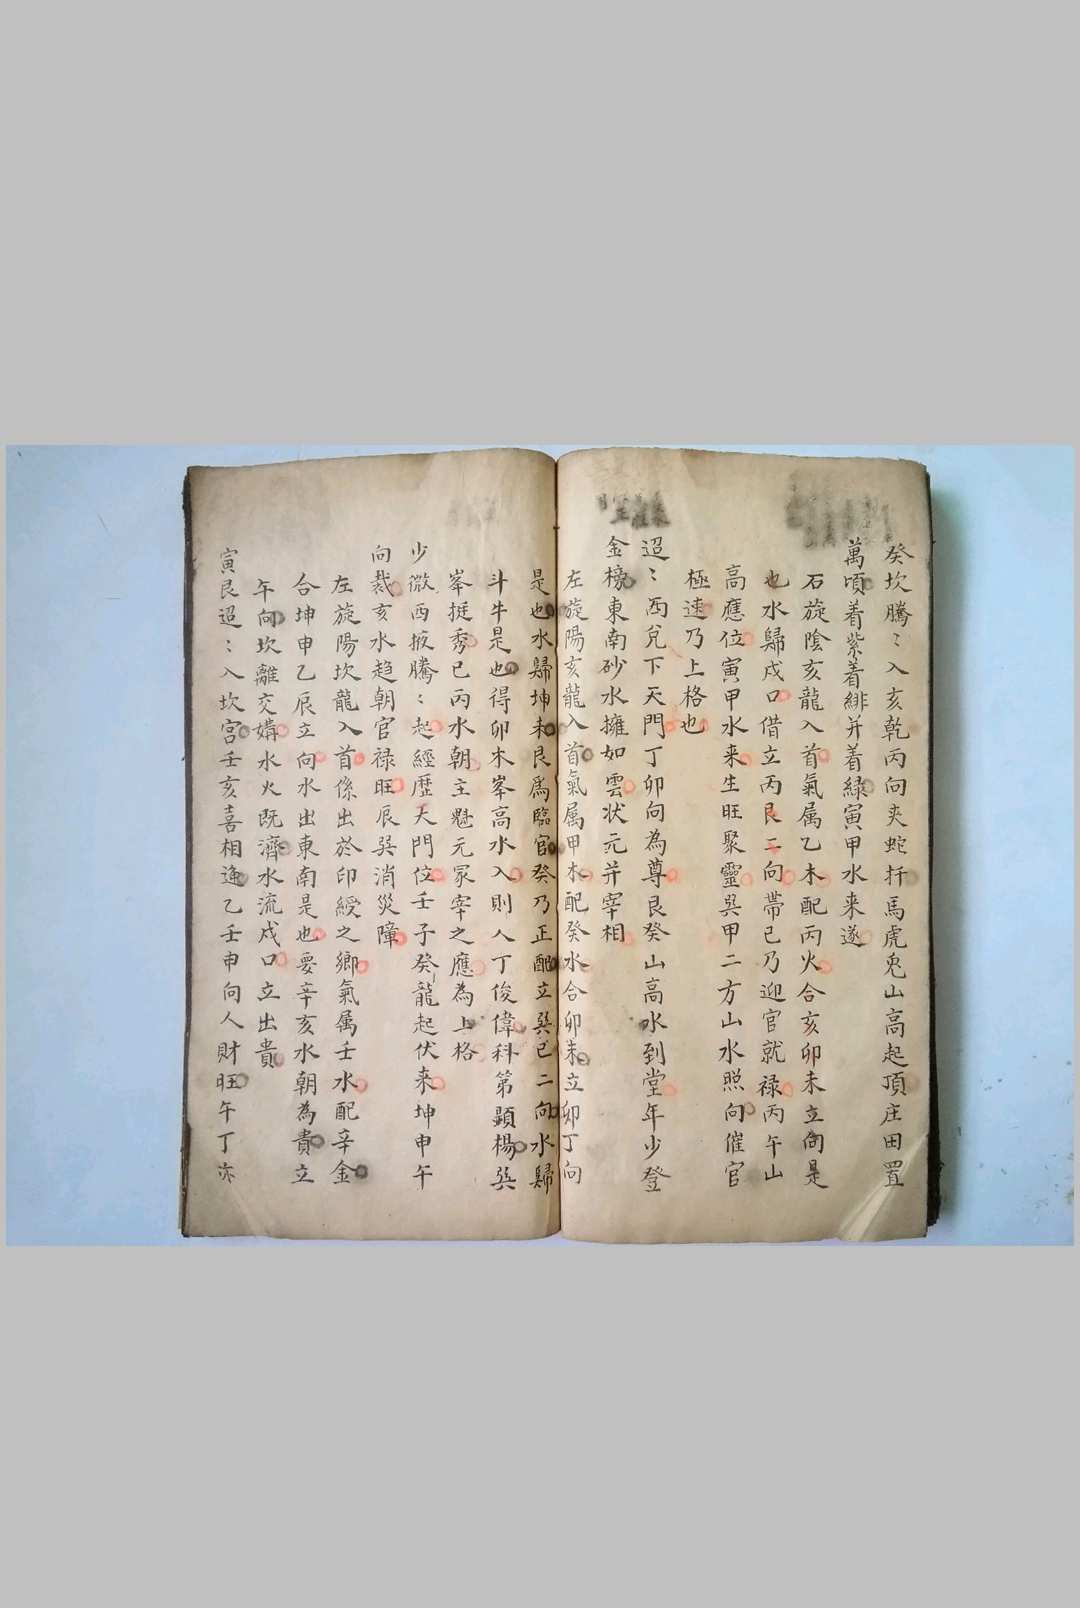 癸坎騰〻入亥乾丙向夾蛇扦馬虎兎山高起頂庄田置
萬頃着紫着緋并着緑寅甲水来遂
石旋陰亥龍入首氣属乙木配丙火合亥卯未立向是
也水歸戍口借立丙艮二向帶已乃迎官就禄丙午山
高應位寅甲水来生旺聚靈巽甲二方山水照向催官
極速乃上格也
迢〻西兌下天門丁卯向為尊艮癸山高水到堂年少登
金榜東南砂水擁如雲状元并宰相
左旋陽亥龍入首氣属甲木配癸水合卯未立卯丁向
是也水歸坤未艮爲臨官癸乃正配立巽已二向水歸
斗牛是也得卯木峯高水入則人丁俊偉科第顕楊巽
峯挺秀已丙水朝主魁元冢宰之應為上格
少微西掖騰〻起經歴天門位壬子癸龍起伏来坤申午
向裁亥水趋朝官禄旺辰巽消災障
左旋陽坎龍入首係出於印綬之鄉氣属壬水配辛金
合坤申乙辰立向水出東南是也要辛亥水朝為貴立
午向坎離交媾水火既濟水流戍口立出貴
寅艮迢〻入坎宮壬亥喜相逢乙壬申向人財旺午丁亦